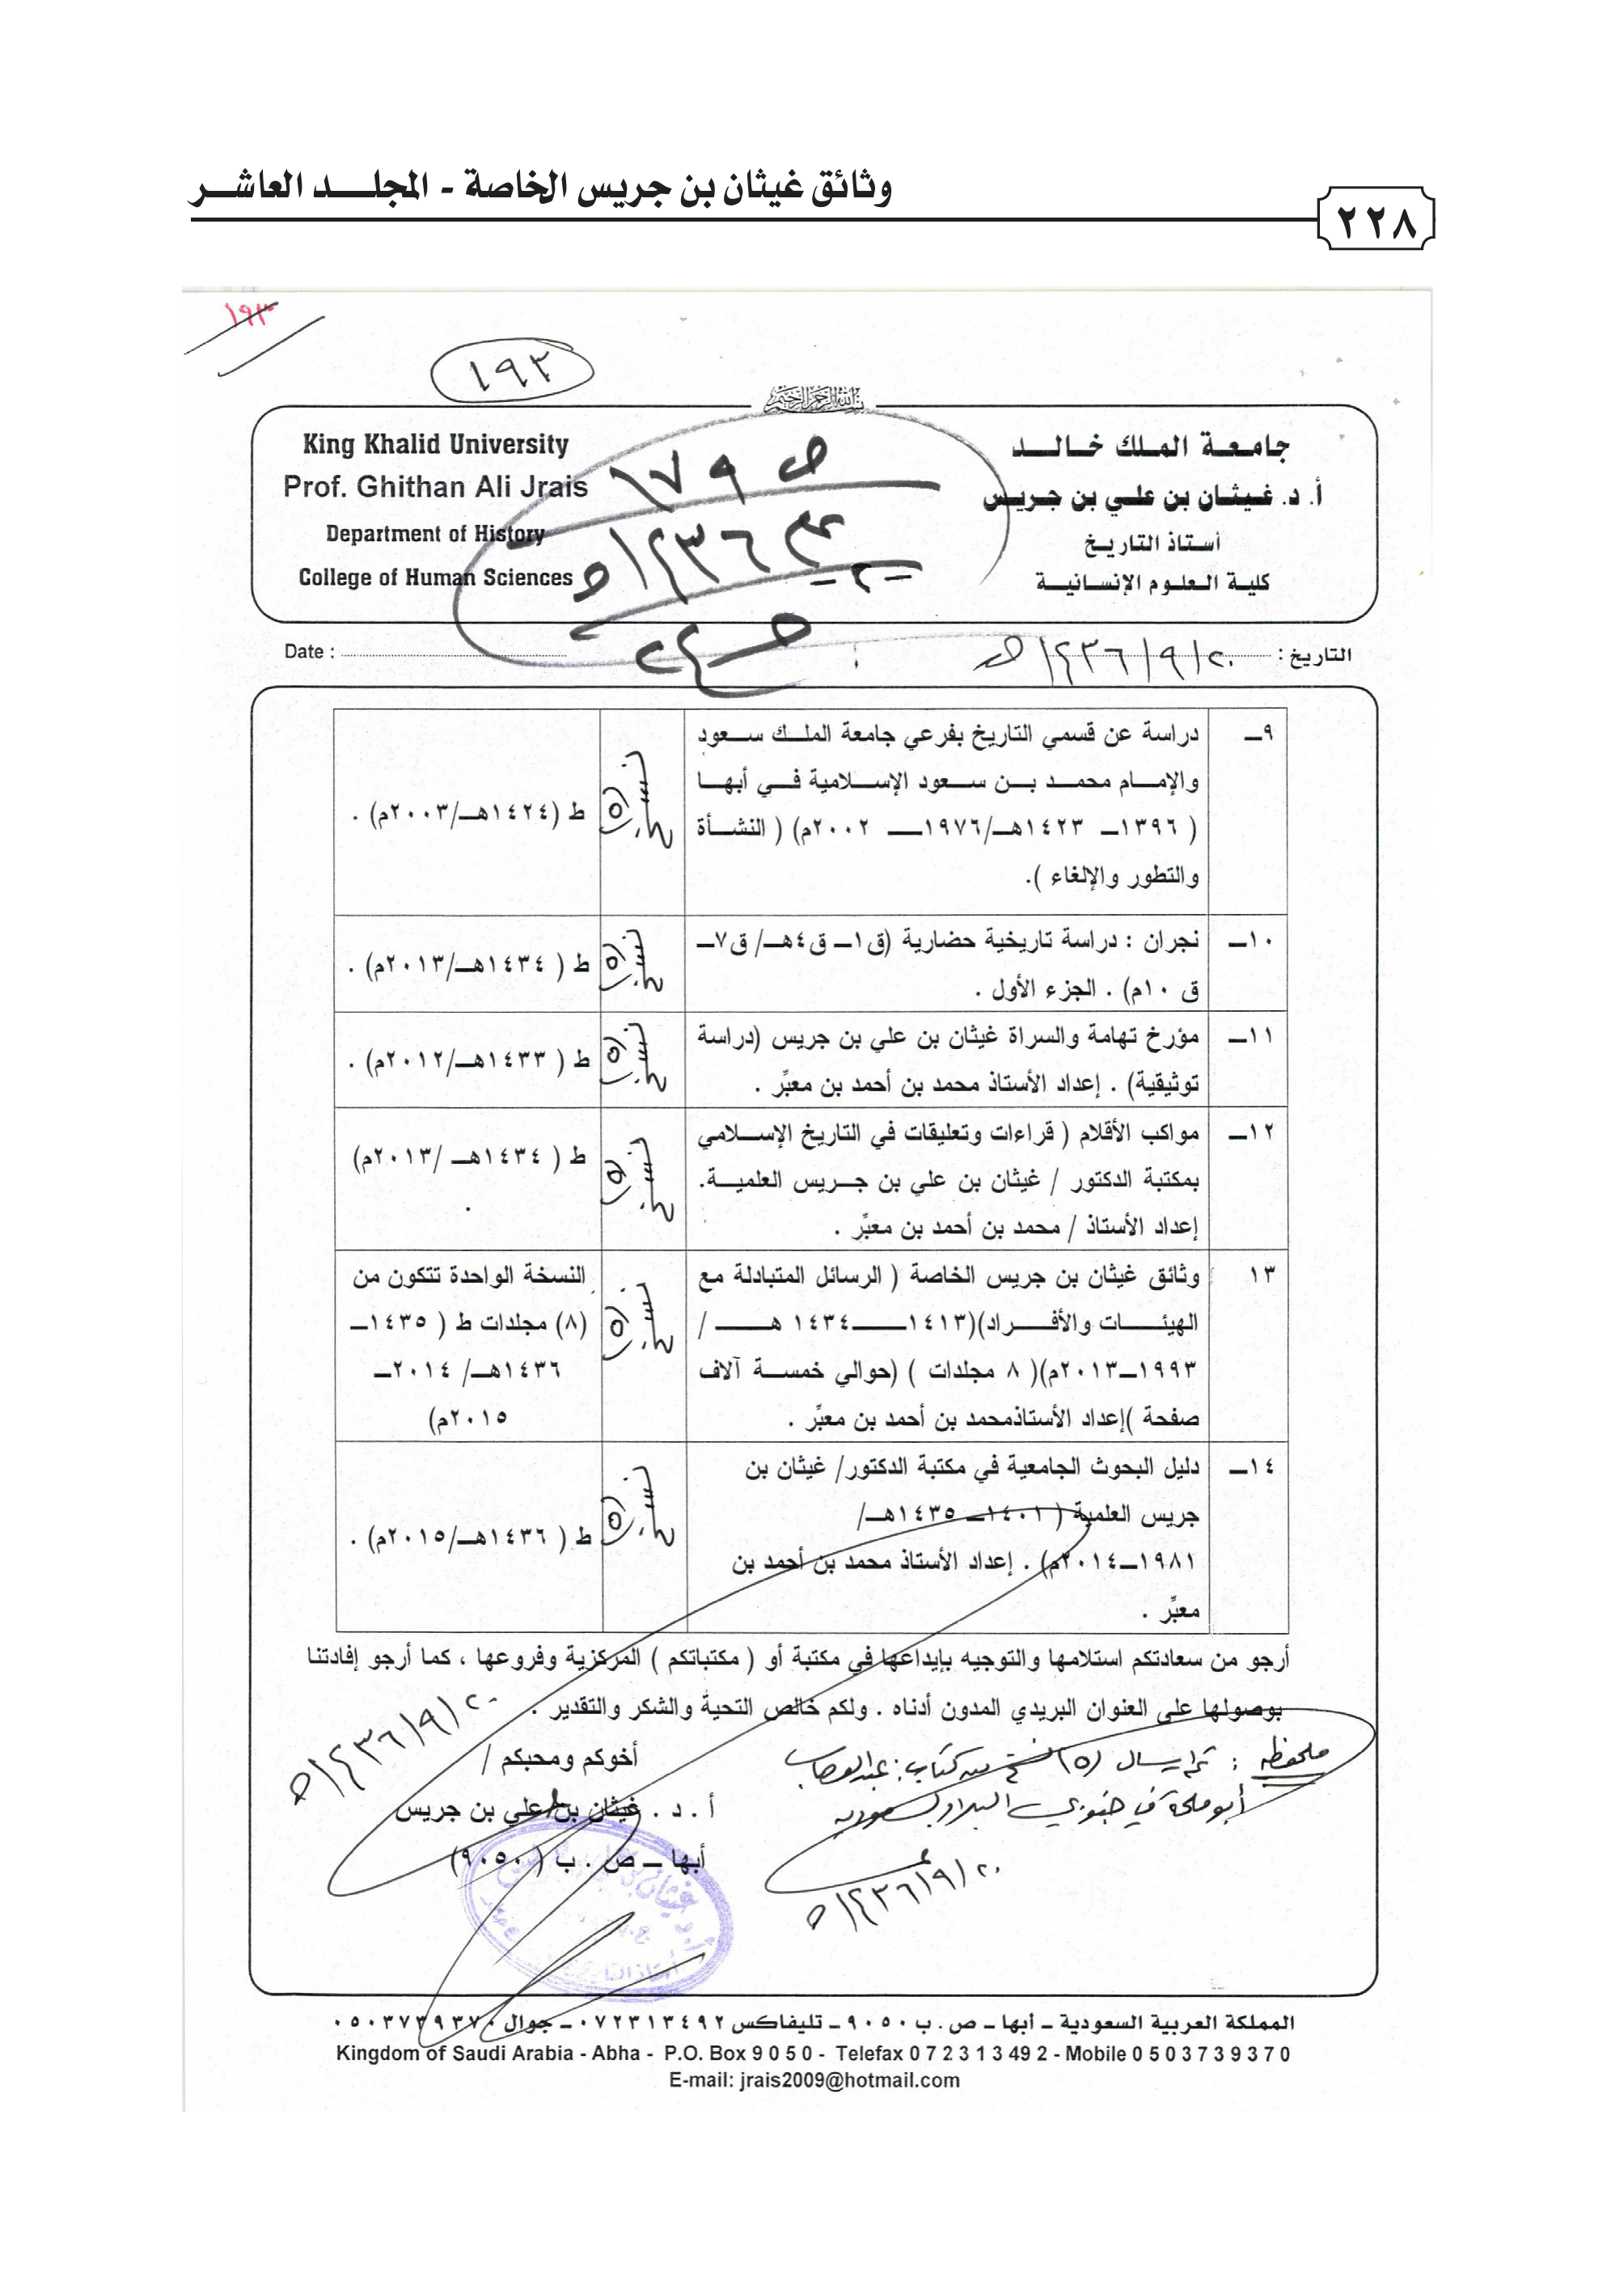 وثائق غيثان بن جريس الخاصة - المجلد العاشر
٢٢٨
١٩٣
١٩٢
بسم الله الرحمن الرحيم
جامعة الملك خالد
أ. د. غيثان بن علي بن جريس
أستاذ التاريخ
كلية العلوم الإنسانية
King Khalid University
Prof. Ghithan Ali Jrais
Department of History
College of Human Sciences
ص ١٧٩
١٤٣٦هـ
التاريخ : ٢٠/٩/١٤٣٦هـ
Date :
٩ـ
دراسة عن قسمي التاريخ بفرعي جامعة الملك سعود
والإمام محمد بن سعود الإسلامية في أبها
( ١٣٩٦ـ ١٤٢٣هـ/١٩٧٦ـ ٢٠٠٢م) ( النشأة
والتطور والإلغاء ).
(٥) نسخ
ط (١٤٢٤هـ/٢٠٠٣م) .
١٠ـ
نجران : دراسة تاريخية حضارية (ق١ـ ق٤هـ/ ق٧ـ
ق ١٠م) . الجزء الأول .
(٥) نسخ
ط ( ١٤٣٤هـ/٢٠١٣م) .
١١ـ
مؤرخ تهامة والسراة غيثان بن علي بن جريس (دراسة
توثيقية) . إعداد الأستاذ محمد بن أحمد بن معبِّر .
(٥) نسخ
ط ( ١٤٣٣هـ/٢٠١٢م) .
١٢ـ
مواكب الأقلام ( قراءات وتعليقات في التاريخ الإسلامي
بمكتبة الدكتور / غيثان بن علي بن جريس العلمية.
إعداد الأستاذ / محمد بن أحمد بن معبِّر .
(٥) نسخ
ط ( ١٤٣٤هـ /٢٠١٣م)
.
١٣
وثائق غيثان بن جريس الخاصة ( الرسائل المتبادلة مع
الهيئات والأفراد)(١٤١٣ـ١٤٣٤ هـ /
١٩٩٣ـ٢٠١٣م)( ٨ مجلدات ) (حوالي خمسة آلاف
صفحة )إعداد الأستاذمحمد بن أحمد بن معبِّر .
(٥) نسخ
النسخة الواحدة تتكون من
(٨) مجلدات ط ( ١٤٣٥ـ
١٤٣٦هـ/ ٢٠١٤ـ
٢٠١٥م)
١٤ـ
دليل البحوث الجامعية في مكتبة الدكتور/ غيثان بن
جريس العلمية ( ١٤٠١ـ ١٤٣٥هـ/
١٩٨١ـ٢٠١٤م) . إعداد الأستاذ محمد بن أحمد بن
معبِّر .
(٥) نسخ
ط ( ١٤٣٦هـ/٢٠١٥م) .
أرجو من سعادتكم استلامها والتوجيه بإيداعها في مكتبة أو ( مكتباتكم ) المركزية وفروعها ، كما أرجو إفادتنا
بوصولها على العنوان البريدي المدون أدناه . ولكم خالص التحية والشكر والتقدير .
٢٠/٩/١٤٣٦هـ
أخوكم ومحبكم /
أ . د . غيثان بن علي بن جريس
أبها ـ ص . ب (٩٠٥٠)
ملحوظة : تم إرسال (٥) نسخ من كتاب : عبدالوهاب
أبو ملحة في جنوبي البلاد السعودية
٢٠/٩/١٤٣٦هـ
المملكة العربية السعودية ـ أبها ـ ص . ب ٩٠٥٠ ـ تليفاكس ٠٧٢٣١٣٤٩٢ ـ جوال ٠٥٠٣٧٣٩٣٧٠
Kingdom of Saudi Arabia - Abha - P.O. Box 9 0 5 0 - Telefax 0 7 2 3 1 3 49 2 - Mobile 0 5 0 3 7 3 9 3 7 0
E-mail: jrais2009@hotmail.com